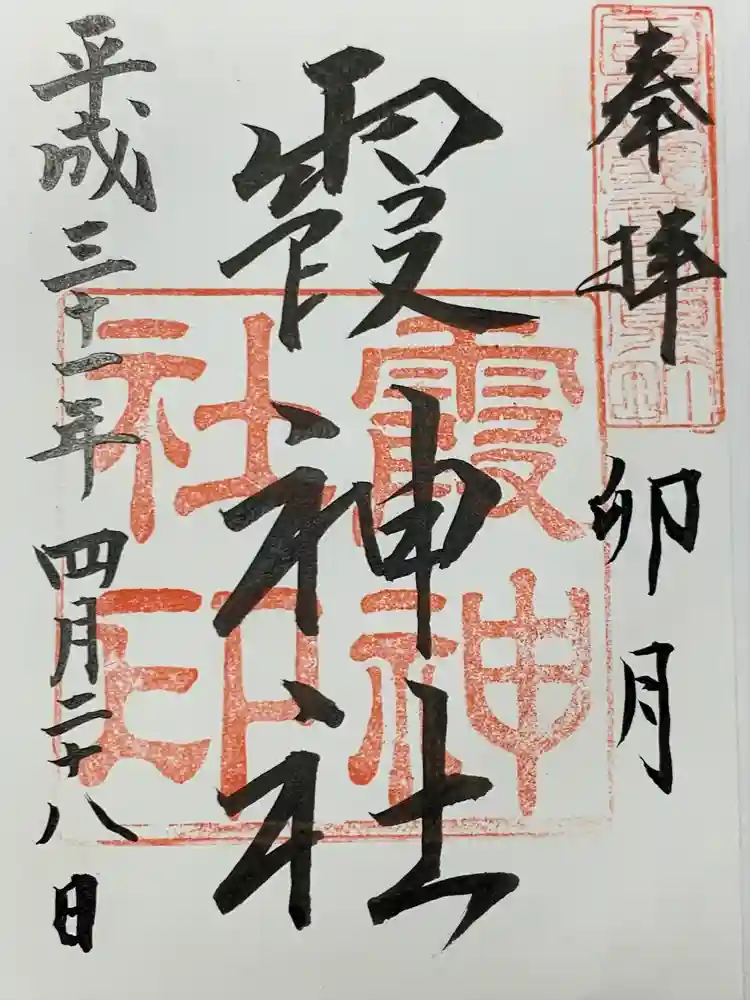 奉拝 卯月
霞神社
霞神社印
平成三十一年 四月二十八日